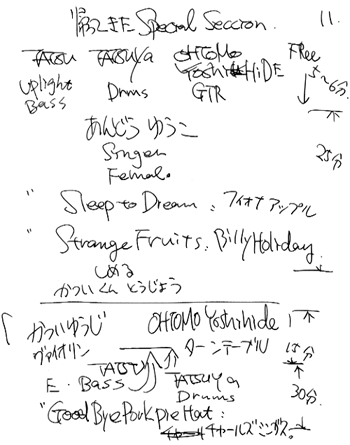 "第2キE Special Seccion. 11.
TATSU TATSUya OHTOMO Free
YoshiHiDE 5〜6分
Uplight Drums GTR
Bass
あんどう ゆうこ
Singer 25分
Female.
" Sleep to Dream : フィオナ アップル
" Strange Fruits. Billy Holiday.
しめる
かついくん とうじょう
かつい ゆうじ OHTOMO Yoshihide
ヴァイオリン ターンテーブル 15分
TATSU
E. Bass TATSUya 30分
Drums
"Good Bye Pork pie Hat :
チャールズ ミンガス